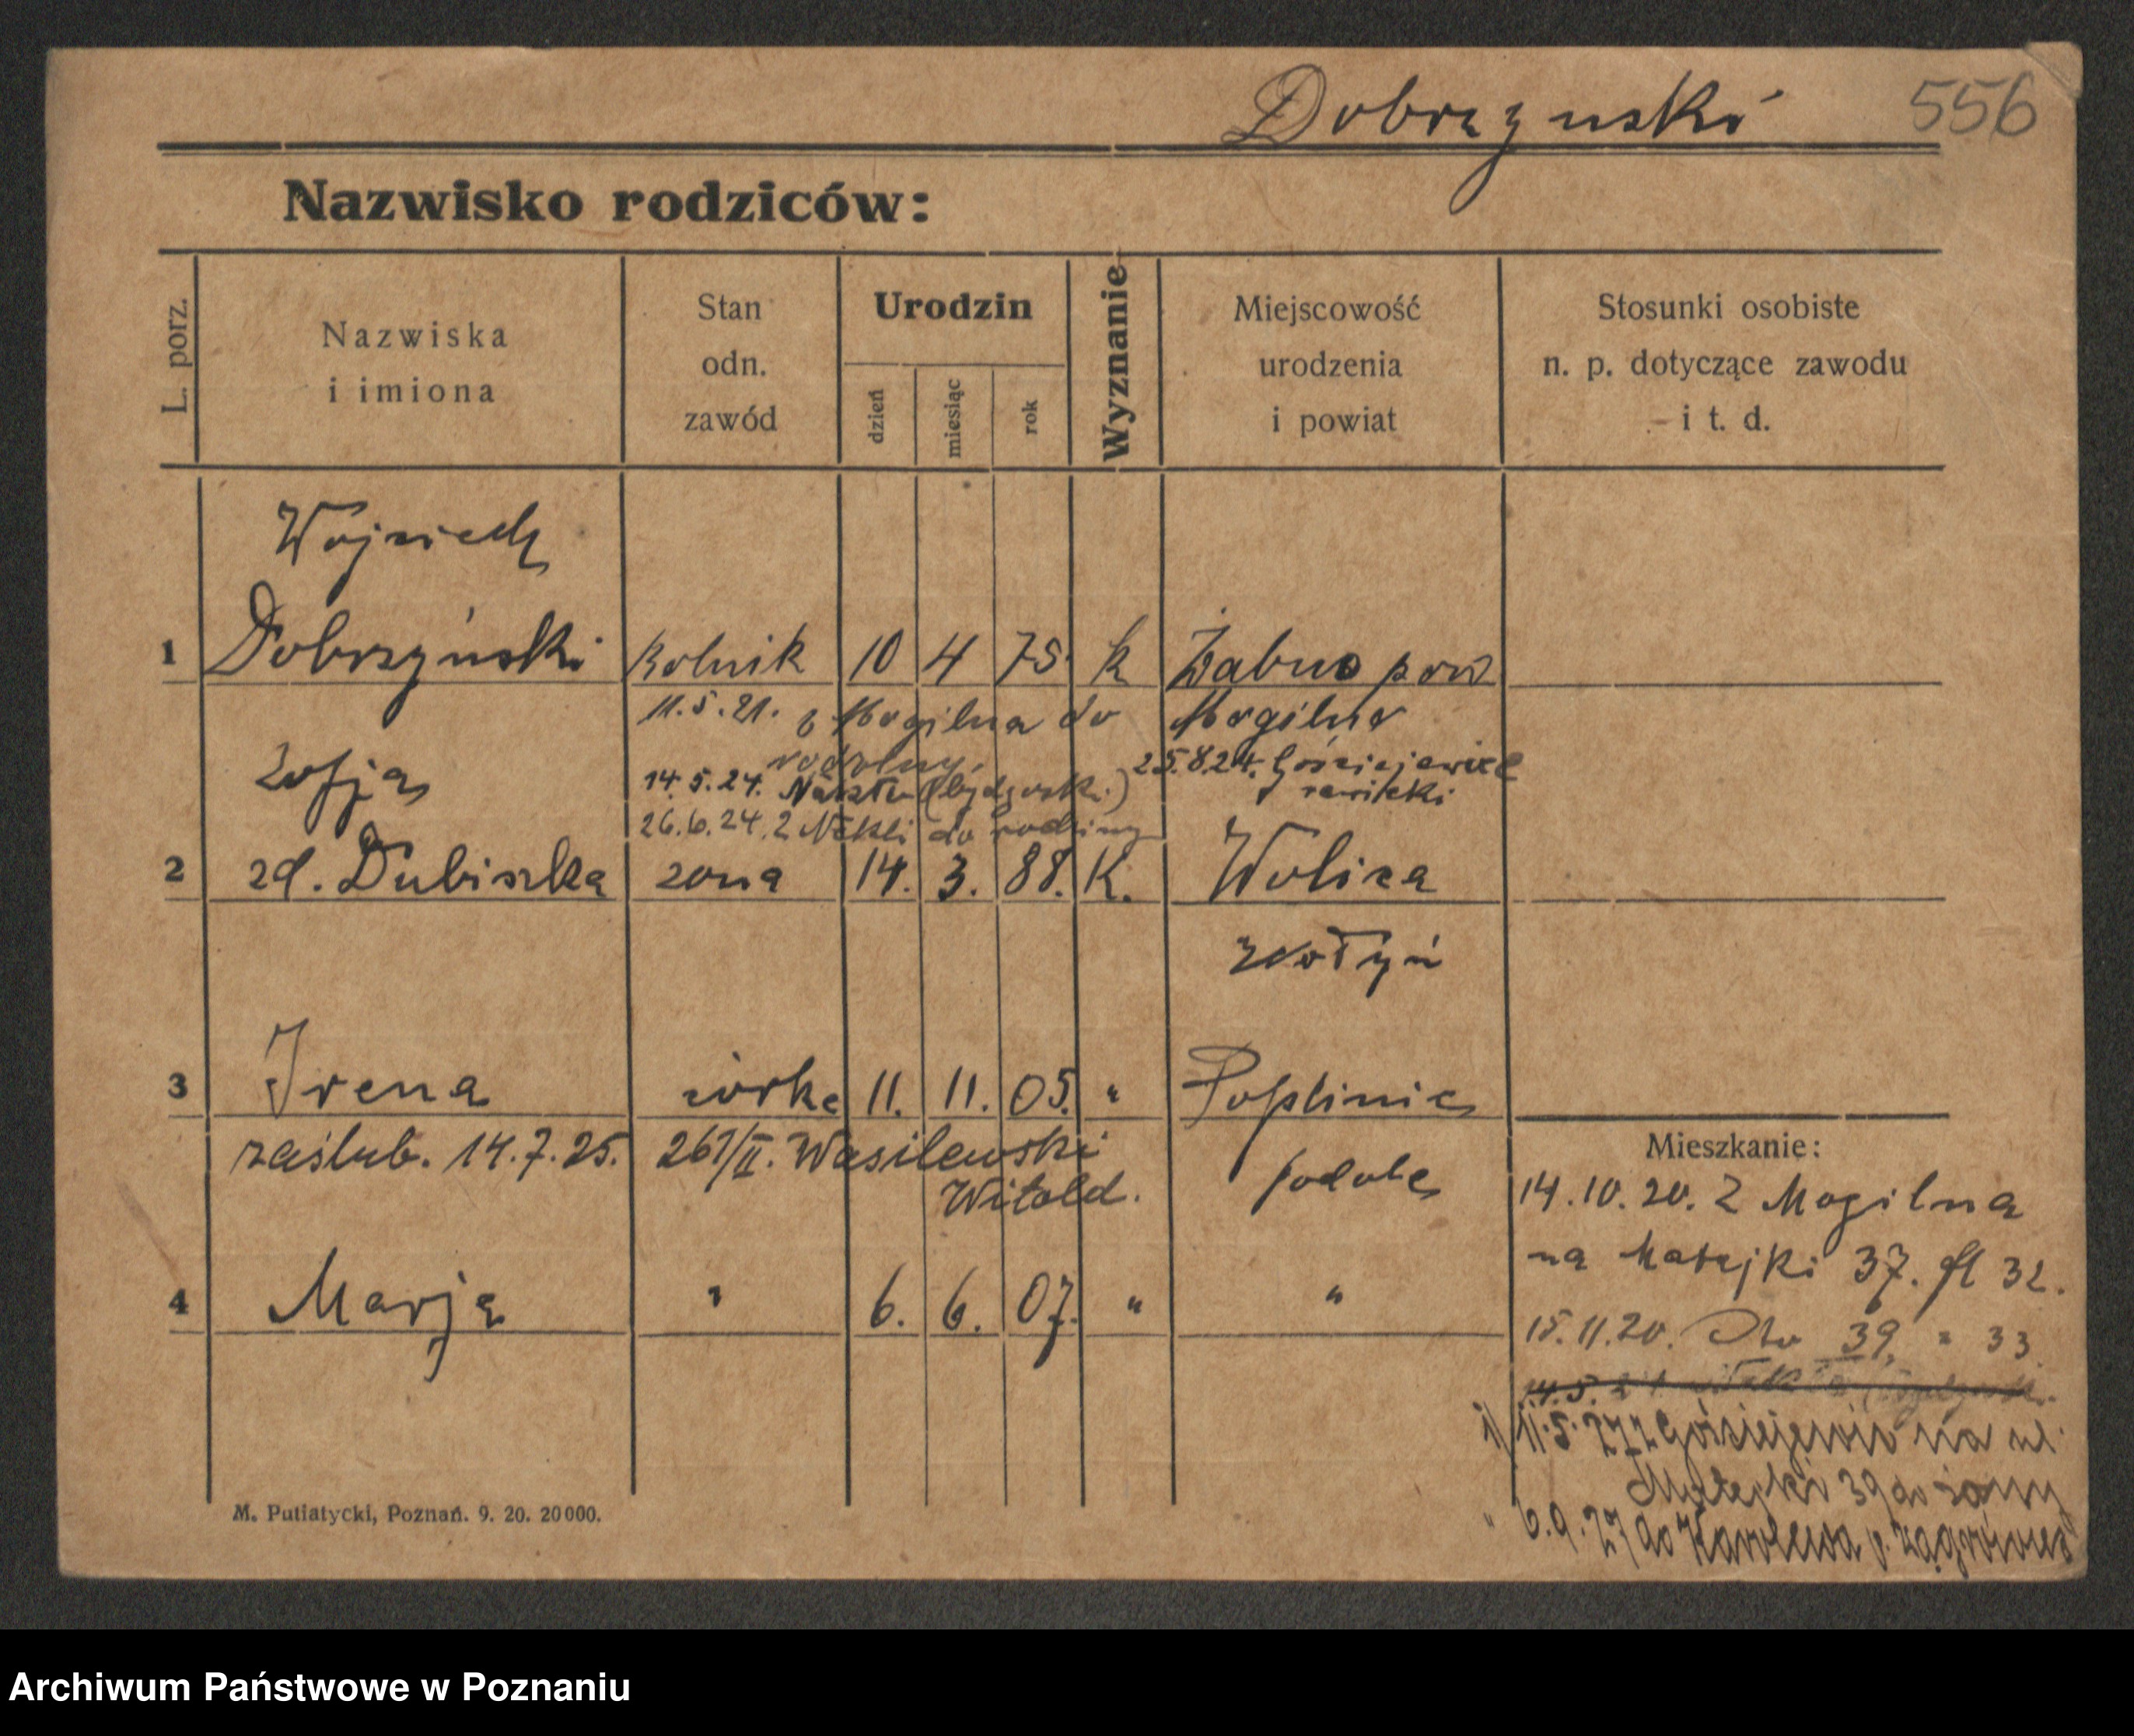 Dobrzynski 556
Nazwisko rodziców:
L. porz.
Nazwiska
i imiona
Stan
odn.
zawód
Urodzin
dzień
miesiąc
rok
Wyznanie
Miejscowość
urodzenia
i powiat
Stosunki osobiste
n. p. dotyczące zawodu
i t. d.
Wojciech
1 Dobrzyński Rolnik 10 4 75. k Żabno pow
11.5.21. z Mogilna do Mogilno
rodziny
Zofja 14.5.24. 25.8.24.
26.6.24. z Nekli do rodziny
2 zd. Dubiska żona 14. 3. 88. K. Wolica
3 Irena córka 11. 11. 05. "
zaślub. 14.7.25. 261/II. Wasilewski
Witold.
4 Marja " 6. 6. 07. " "
Mieszkanie:
14.10.20. Z Mogilna
na Matejki 37. 32.
15.11.20. Dto 39. " 33.
11.5.27 z na ul.
Matejki 39 do żony
" 6.9.27 do Karolewa p.
M. Putiatycki, Poznań. 9. 20. 20000.
Archiwum Państwowe w Poznaniu